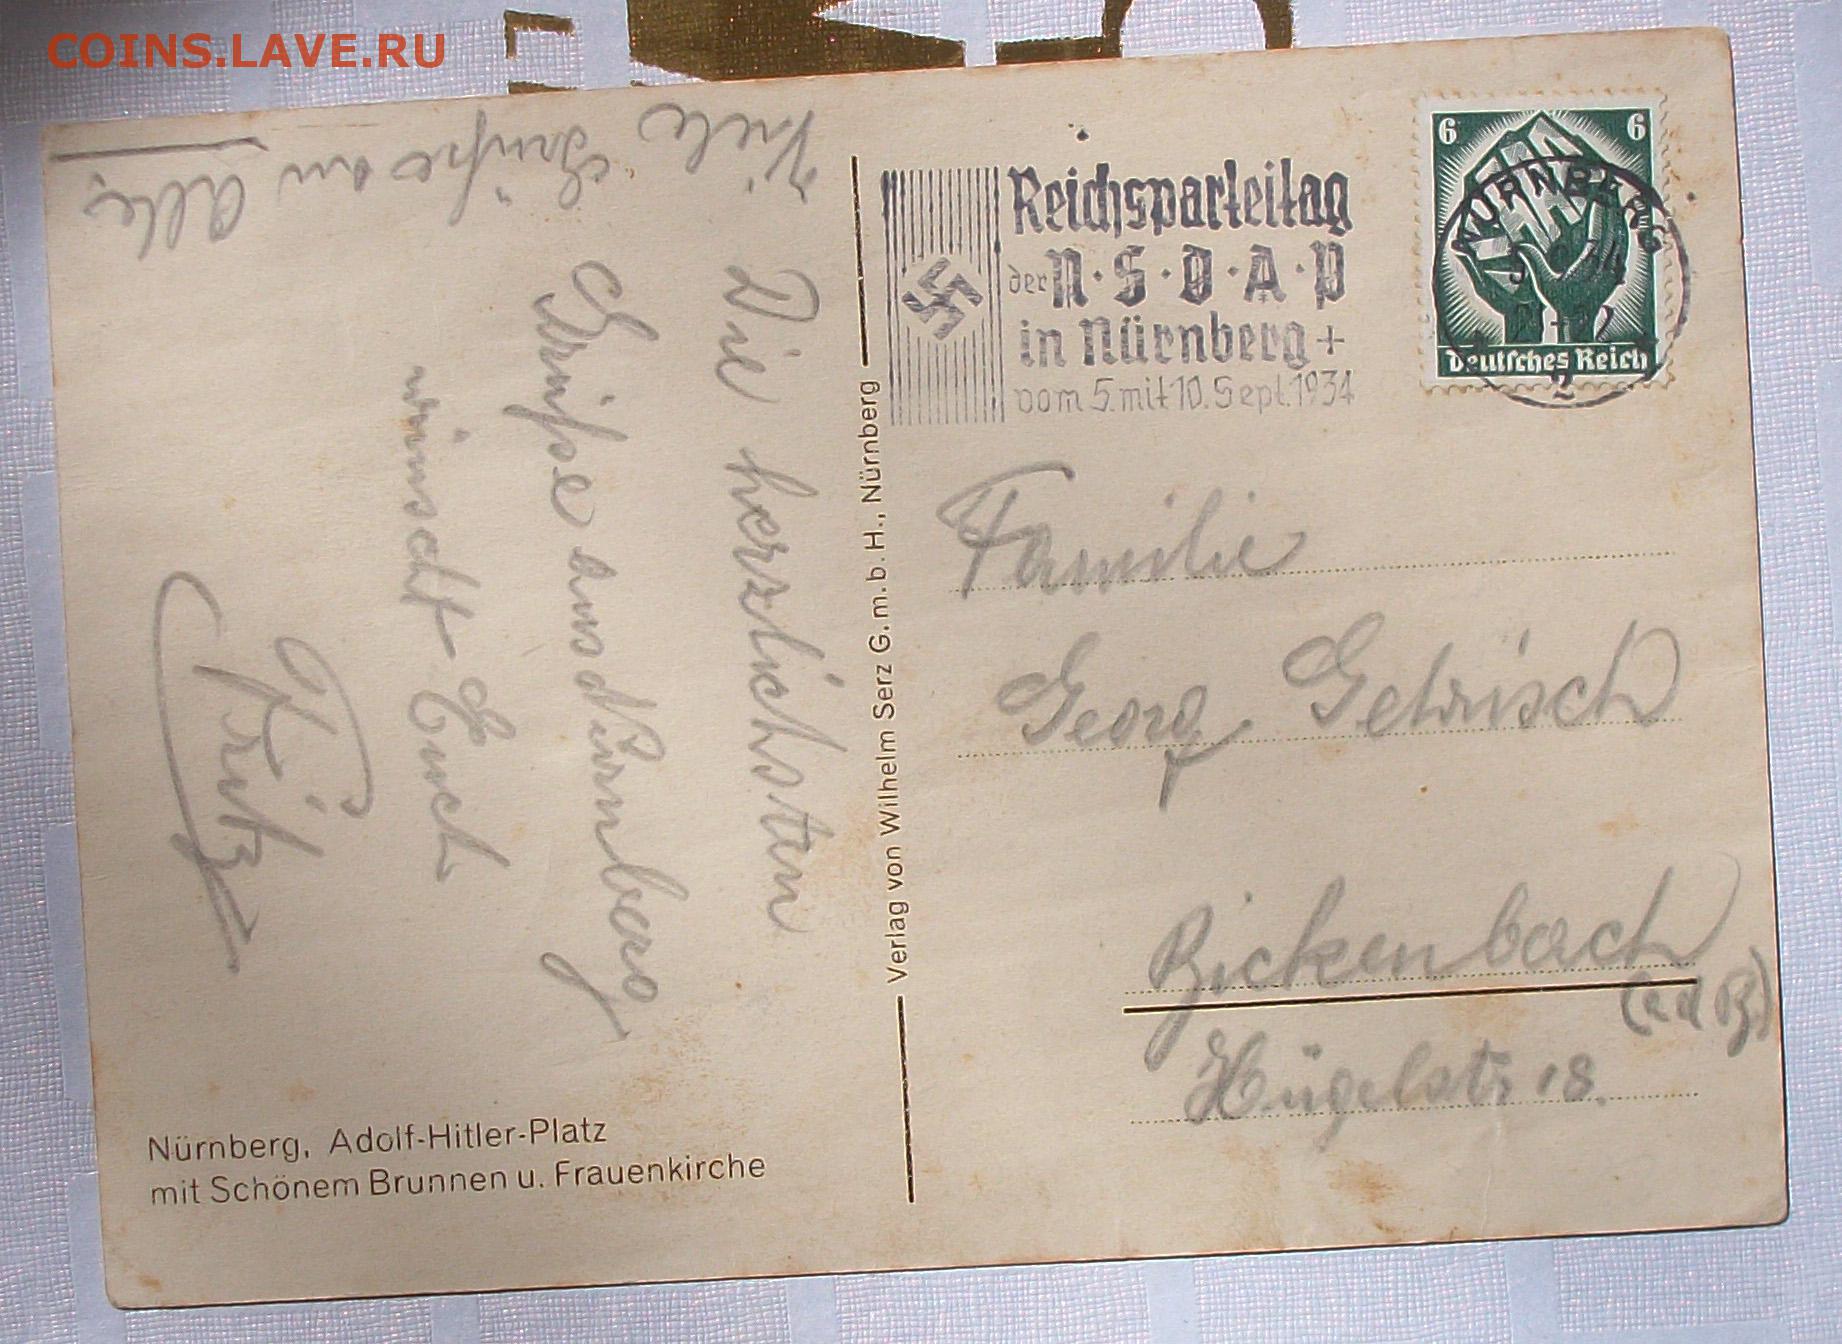 COINS.LAVE.RU
Viele Grüße an Alle
Die herzlichsten
Grüße aus Nürnberg
wünscht Euch
Fritz
Nürnberg, Adolf-Hitler-Platz
mit Schönem Brunnen u. Frauenkirche
Verlag von Wilhelm Serz G.m.b.H., Nürnberg
Reichsparteitag
der N·S·D·A·P
in Nürnberg +
vom 5. mit 10. Sept. 1934
6 6
NÜRNBERG
2
Deutsches Reich
Familie
Georg
Bickenbach
(a d B)
Hügelstr. 18.